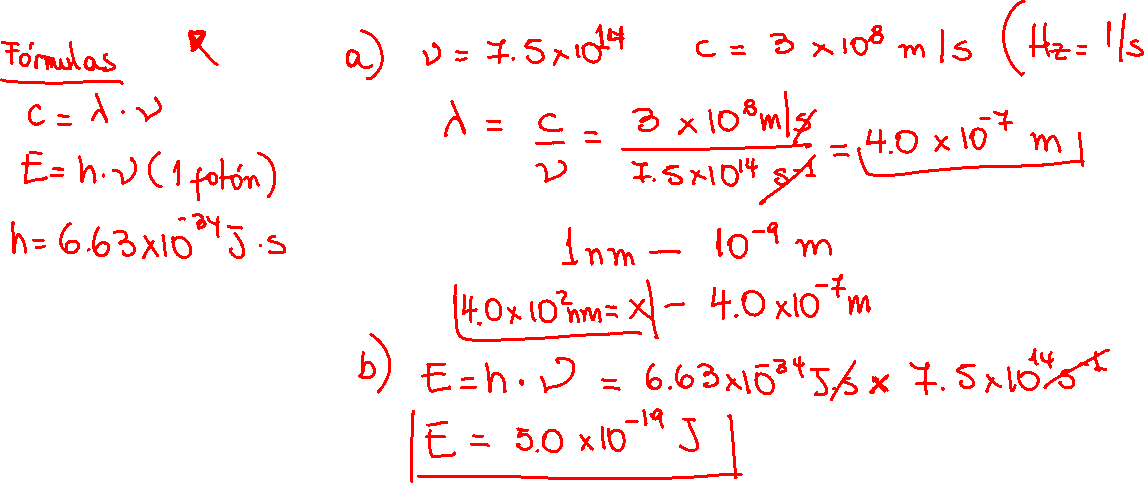 Fórmulas
c = λ . ν
E = h . ν (1 fotón)
h = 6.63 x 10^-34 J . s
a) ν = 7.5 x 10^14 c = 3 x 10^8 m/s (Hz = 1/s
λ = c/ν = 3 x 10^8 m/s / 7.5 x 10^14 s^-1 = 4.0 x 10^-7 m
1 nm — 10^-9 m
4.0 x 10^2 nm = x — 4.0 x 10^-7 m
b) E = h . ν = 6.63 x 10^-34 J.s x 7.5 x 10^14 s^-1
E = 5.0 x 10^-19 J